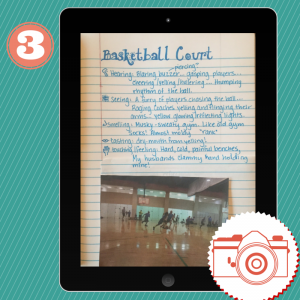 3
Basketball Court
"piercing"
Hearing: Blaring buzzer... gasping players...
cheering/yelling/hollering... thumping
rhythm of the ball.
Seeing: A flurry of players chasing the ball...
Raging coaches yelling and flinging their
arms. Yellow gleaming/reflecting lights.
Smelling: Musky-sweaty gym. Like old gym
socks! Almost moldy. "rank"
tasting: dry mouth from yelling!
touching/feeling: Hard, cold, painful benches,
My husband's clammy hand holding
mine!